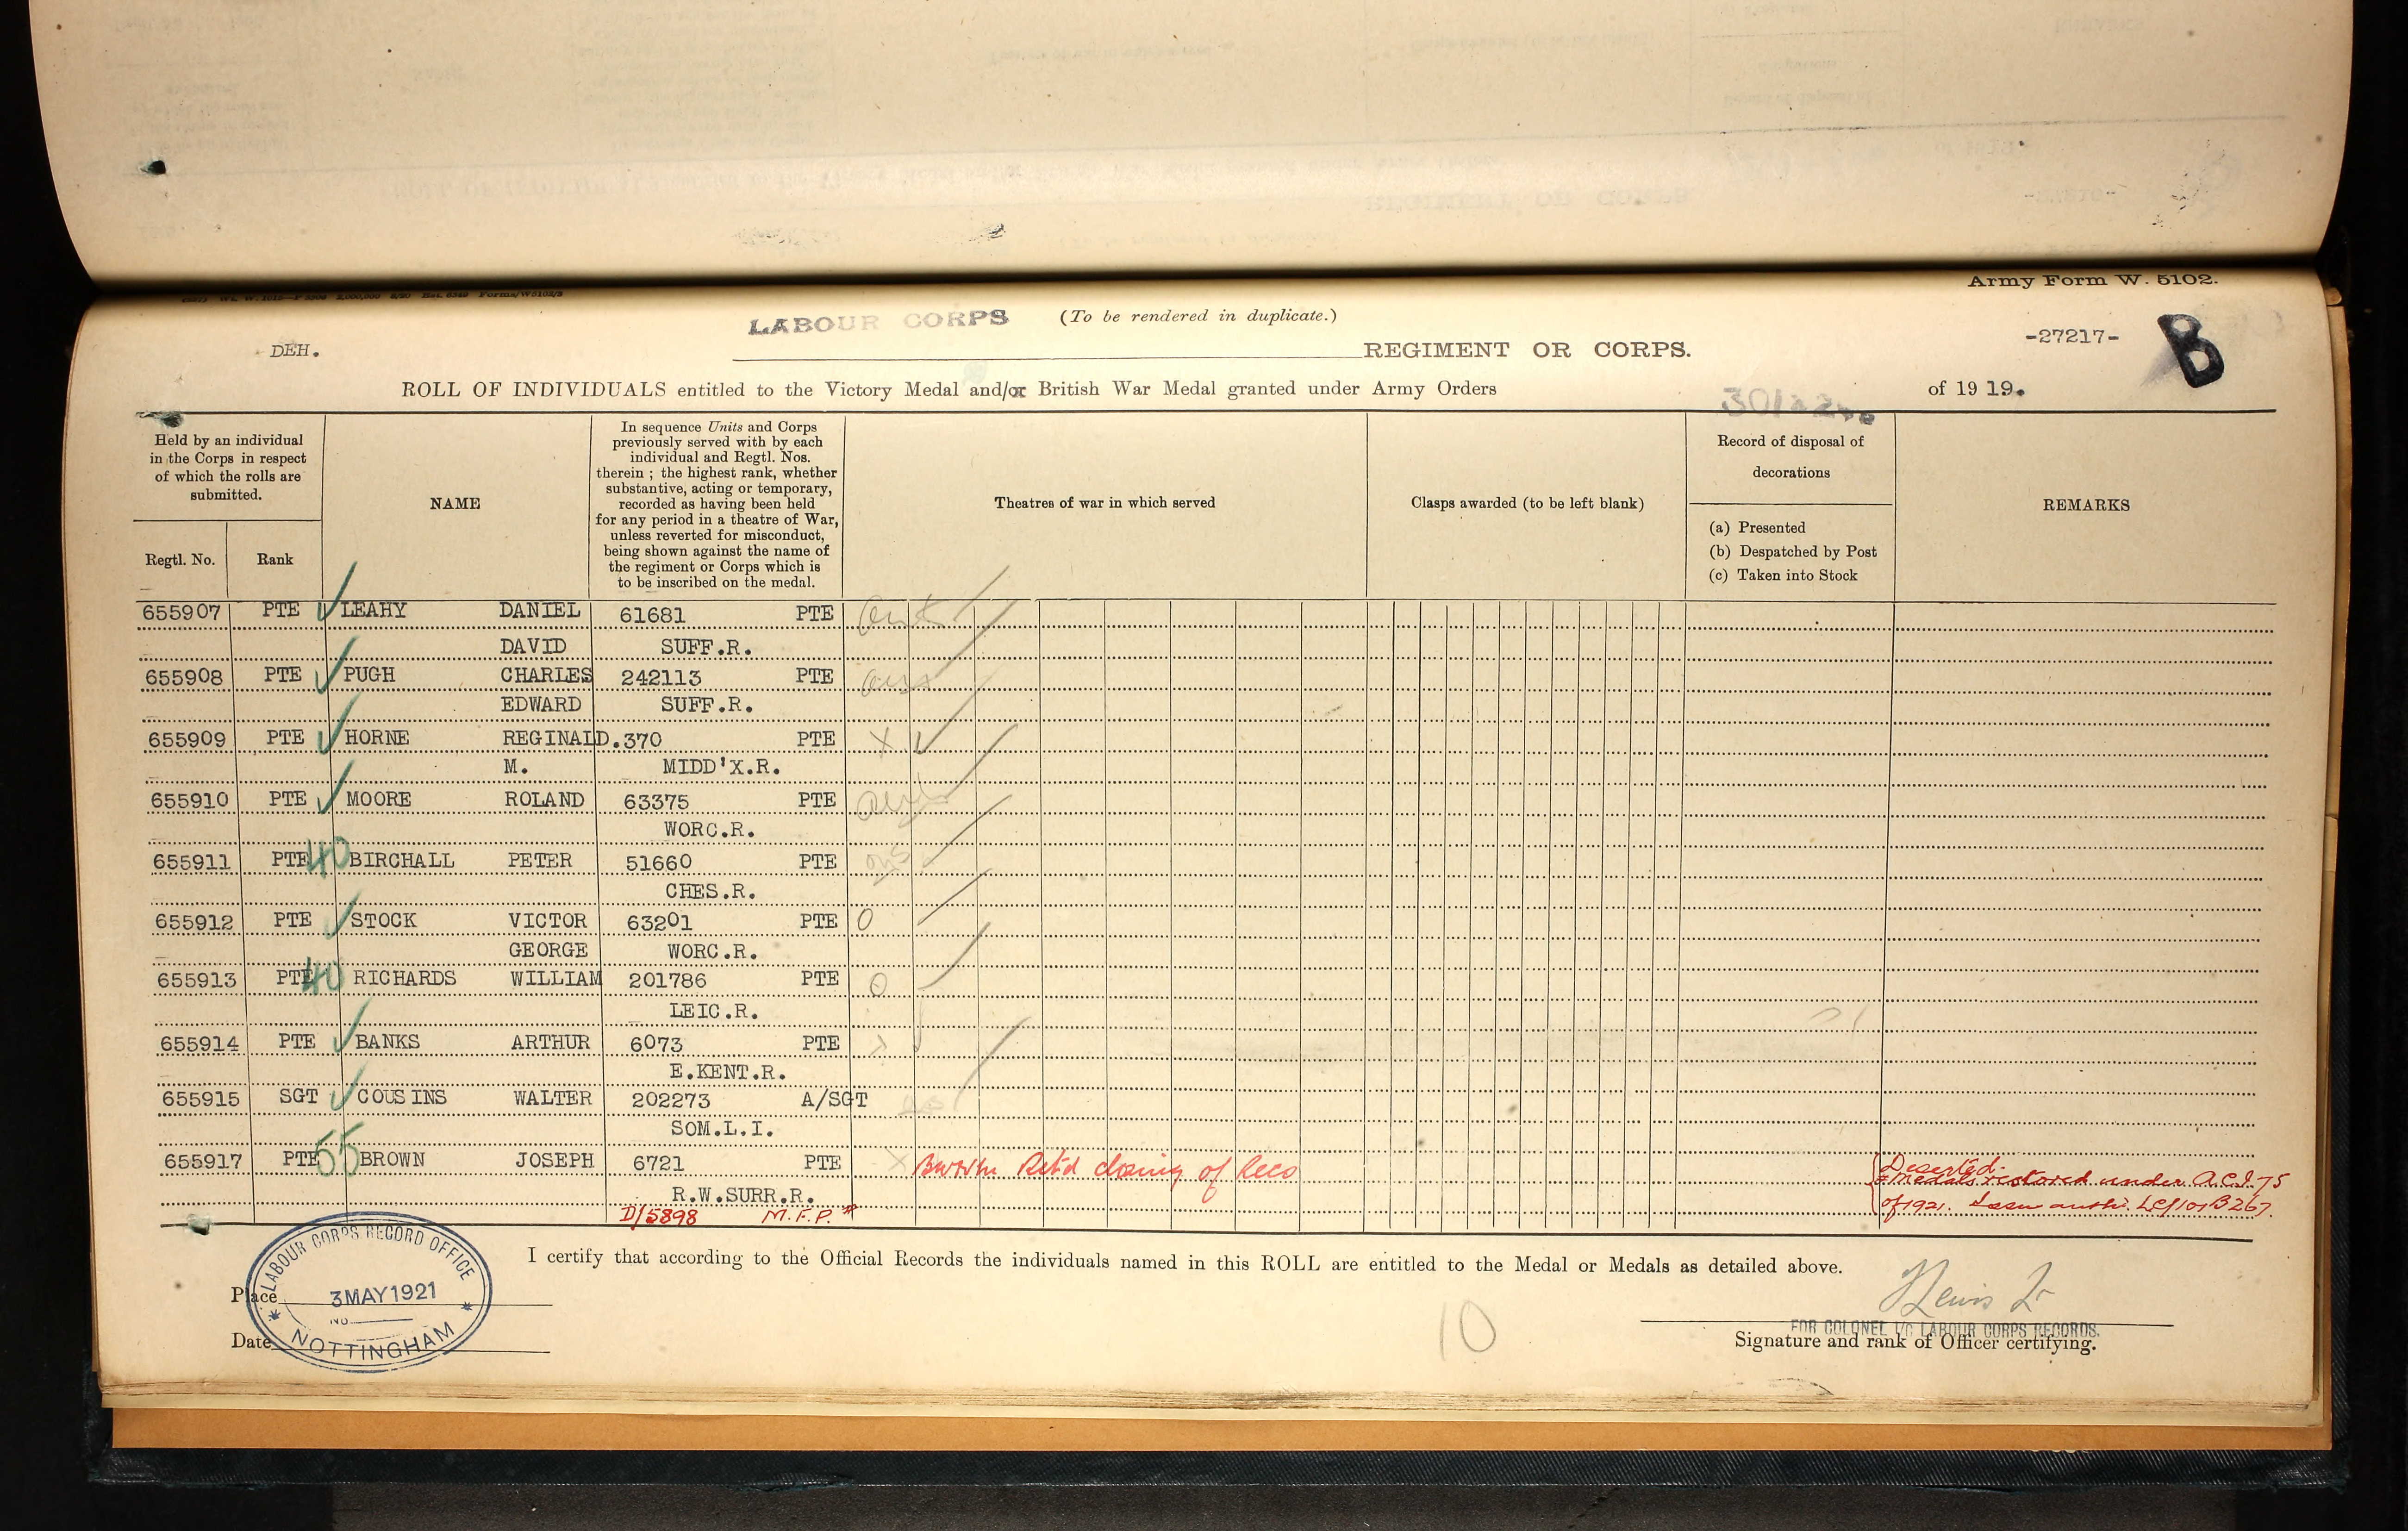 Army Form W. 5102.
LABOUR CORPS (To be rendered in duplicate.)
-27217- B
DEH. REGIMENT OR CORPS.
ROLL OF INDIVIDUALS entitled to the Victory Medal and/or British War Medal granted under Army Orders of 1919.
Held by an individual
in the Corps in respect
of which the rolls are
submitted.
Regtl. No. Rank
NAME
In sequence Units and Corps
previously served with by each
individual and Regtl. Nos.
therein ; the highest rank, whether
substantive, acting or temporary,
recorded as having been held
for any period in a theatre of War,
unless reverted for misconduct,
being shown against the name of
the regiment or Corps which is
to be inscribed on the medal.
Theatres of war in which served
Clasps awarded (to be left blank)
Record of disposal of
decorations
(a) Presented
(b) Despatched by Post
(c) Taken into Stock
REMARKS
655907 PTE LEAHY DANIEL 61681 PTE
DAVID SUFF.R.
655908 PTE PUGH CHARLES 242113 PTE
EDWARD SUFF.R.
655909 PTE HORNE REGINALD. 370 PTE X
M. MIDD'X.R.
655910 PTE MOORE ROLAND 63375 PTE
WORC.R.
655911 PTE 40 BIRCHALL PETER 51660 PTE
CHES.R.
655912 PTE STOCK VICTOR 63201 PTE O
GEORGE WORC.R.
655913 PTE 40 RICHARDS WILLIAM 201786 PTE O
LEIC.R.
655914 PTE BANKS ARTHUR 6073 PTE X
E.KENT.R.
655915 SGT COUSINS WALTER 202273 A/SGT
SOM.L.I.
655917 PTE 55 BROWN JOSEPH 6721 PTE X Ret'd closing of Recs Deserted.
R.W.SURR.R. Medals restored under A.C.I. 75
D/5898 M.F.P. of 1921.
I certify that according to the Official Records the individuals named in this ROLL are entitled to the Medal or Medals as detailed above.
LABOUR CORPS RECORD OFFICE
Place 3 MAY 1921
NO
NOTTINGHAM
Date
10
FOR COLONEL I/C LABOUR CORPS RECORDS.
Signature and rank of Officer certifying.